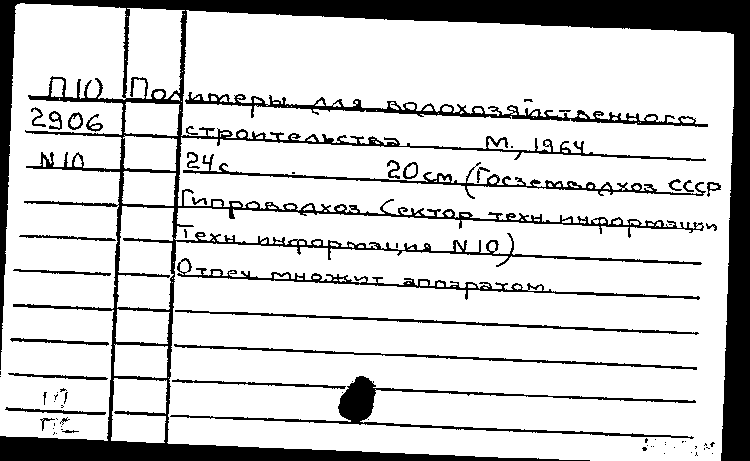 П10 Полимеры для водохозяйственного
2906 строительства. М., 1964.
N10 24 с. 20 см. (Госземводхоз СССР
Гипроводхоз. Сектор техн. информации
Техн. информация N10)
Отпеч. множит аппаратом.
10
ПС